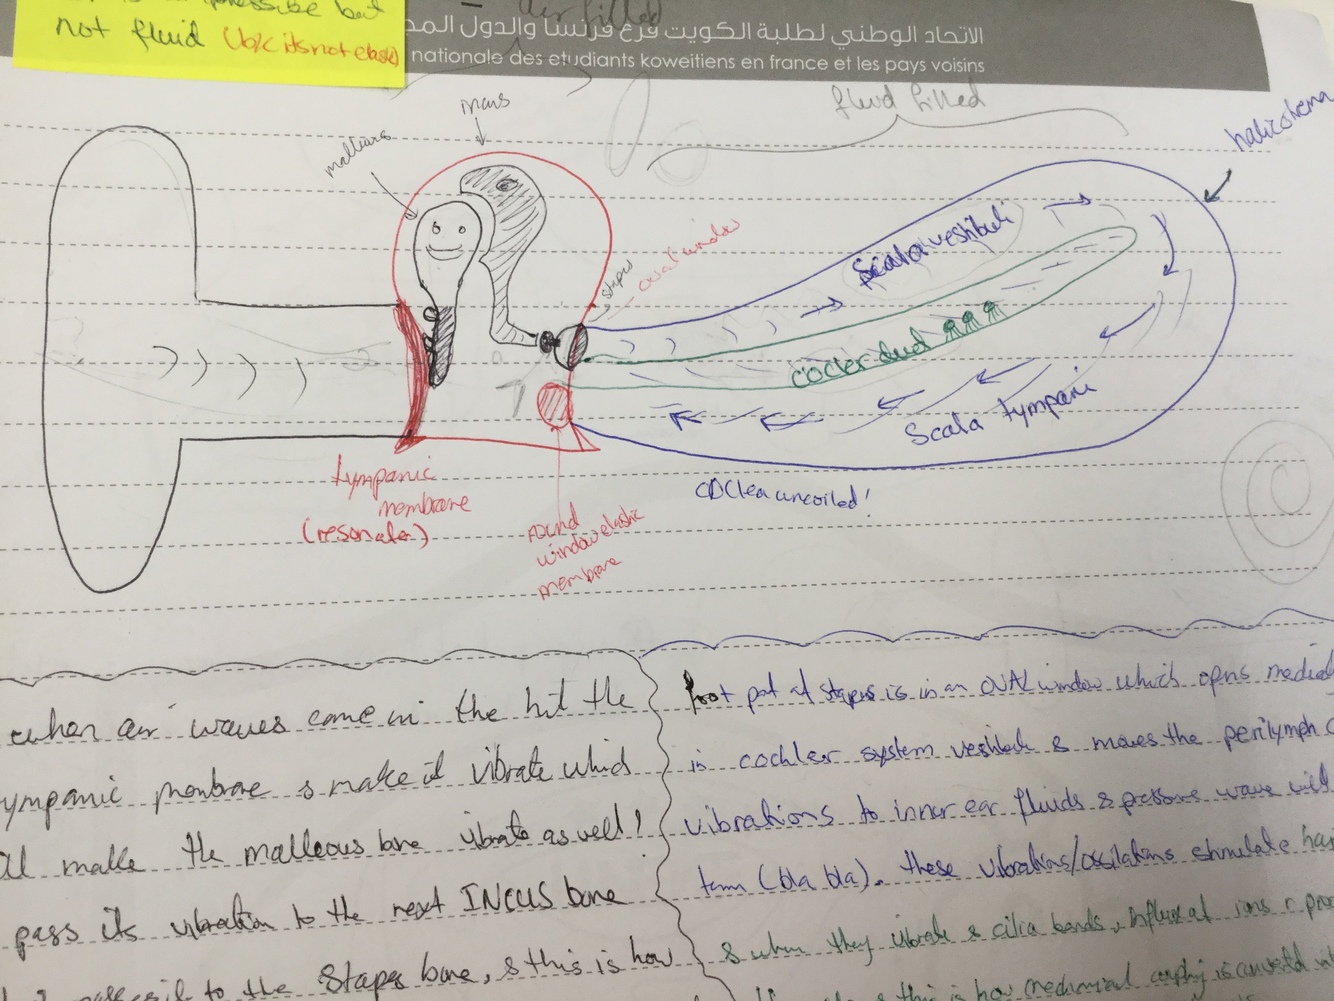 not fluid (b/c its not elastic)
air filled
الاتحاد الوطني لطلبة الكويت فرع فرنسا والدول المج
nationale des etudiants koweitiens en france et les pays voisins
fluid filled
mallius
stapes
oval window
Scala vestibuli
cocler duct
Scala tympani
COClea uncoiled!
tympanic
membrane
(resonator)
round
window elastic
membrane
when air waves come in the hit the
ympanic membrane & make it vibrate which
ill make the malleous bone vibrate as well!
pass its vibration to the next INCUS bone
to the stapes bone, & this is how
foot pat of stapes is in an OVAL window which opns medial
in cochlear system vestibuli & moves the perilymph
vibrations to inner ear fluids & pressure wave will
(bla bla). these vibrations/ossilations stimulate hai
& when they vibrate & cilia bends, influx of ions
& this is how mechanical is converted